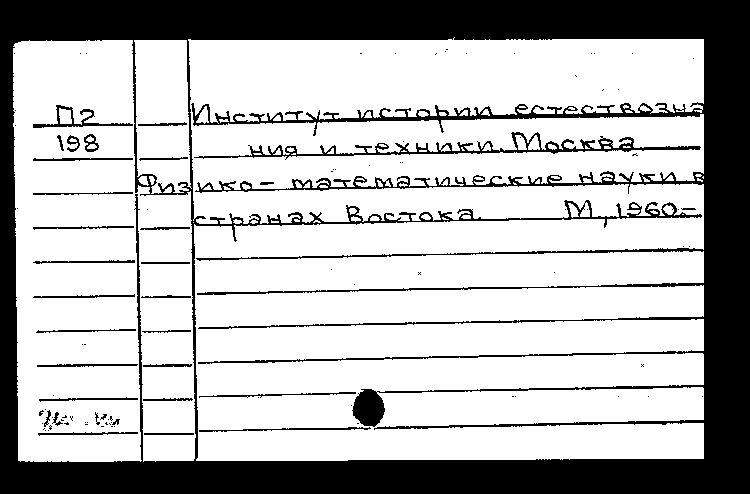 П2 Институт истории естествозна
198 ния и техники. Москва
Физико- математические науки в
странах Востока. М., 1960-